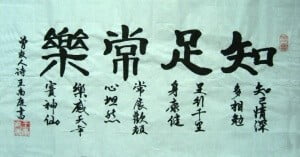 知足常樂
知己情深
多相勉
足行千里
身康健
常展歡顏
心坦然
樂感天年
賽神仙